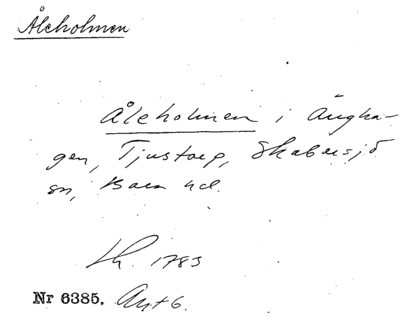 Åleholmen
Åleholmen i Ängha-
gen, Tjustorp, Skabersjö
sn, Bara hd.
Lh. 1783
Nr 6385. Ant 6.